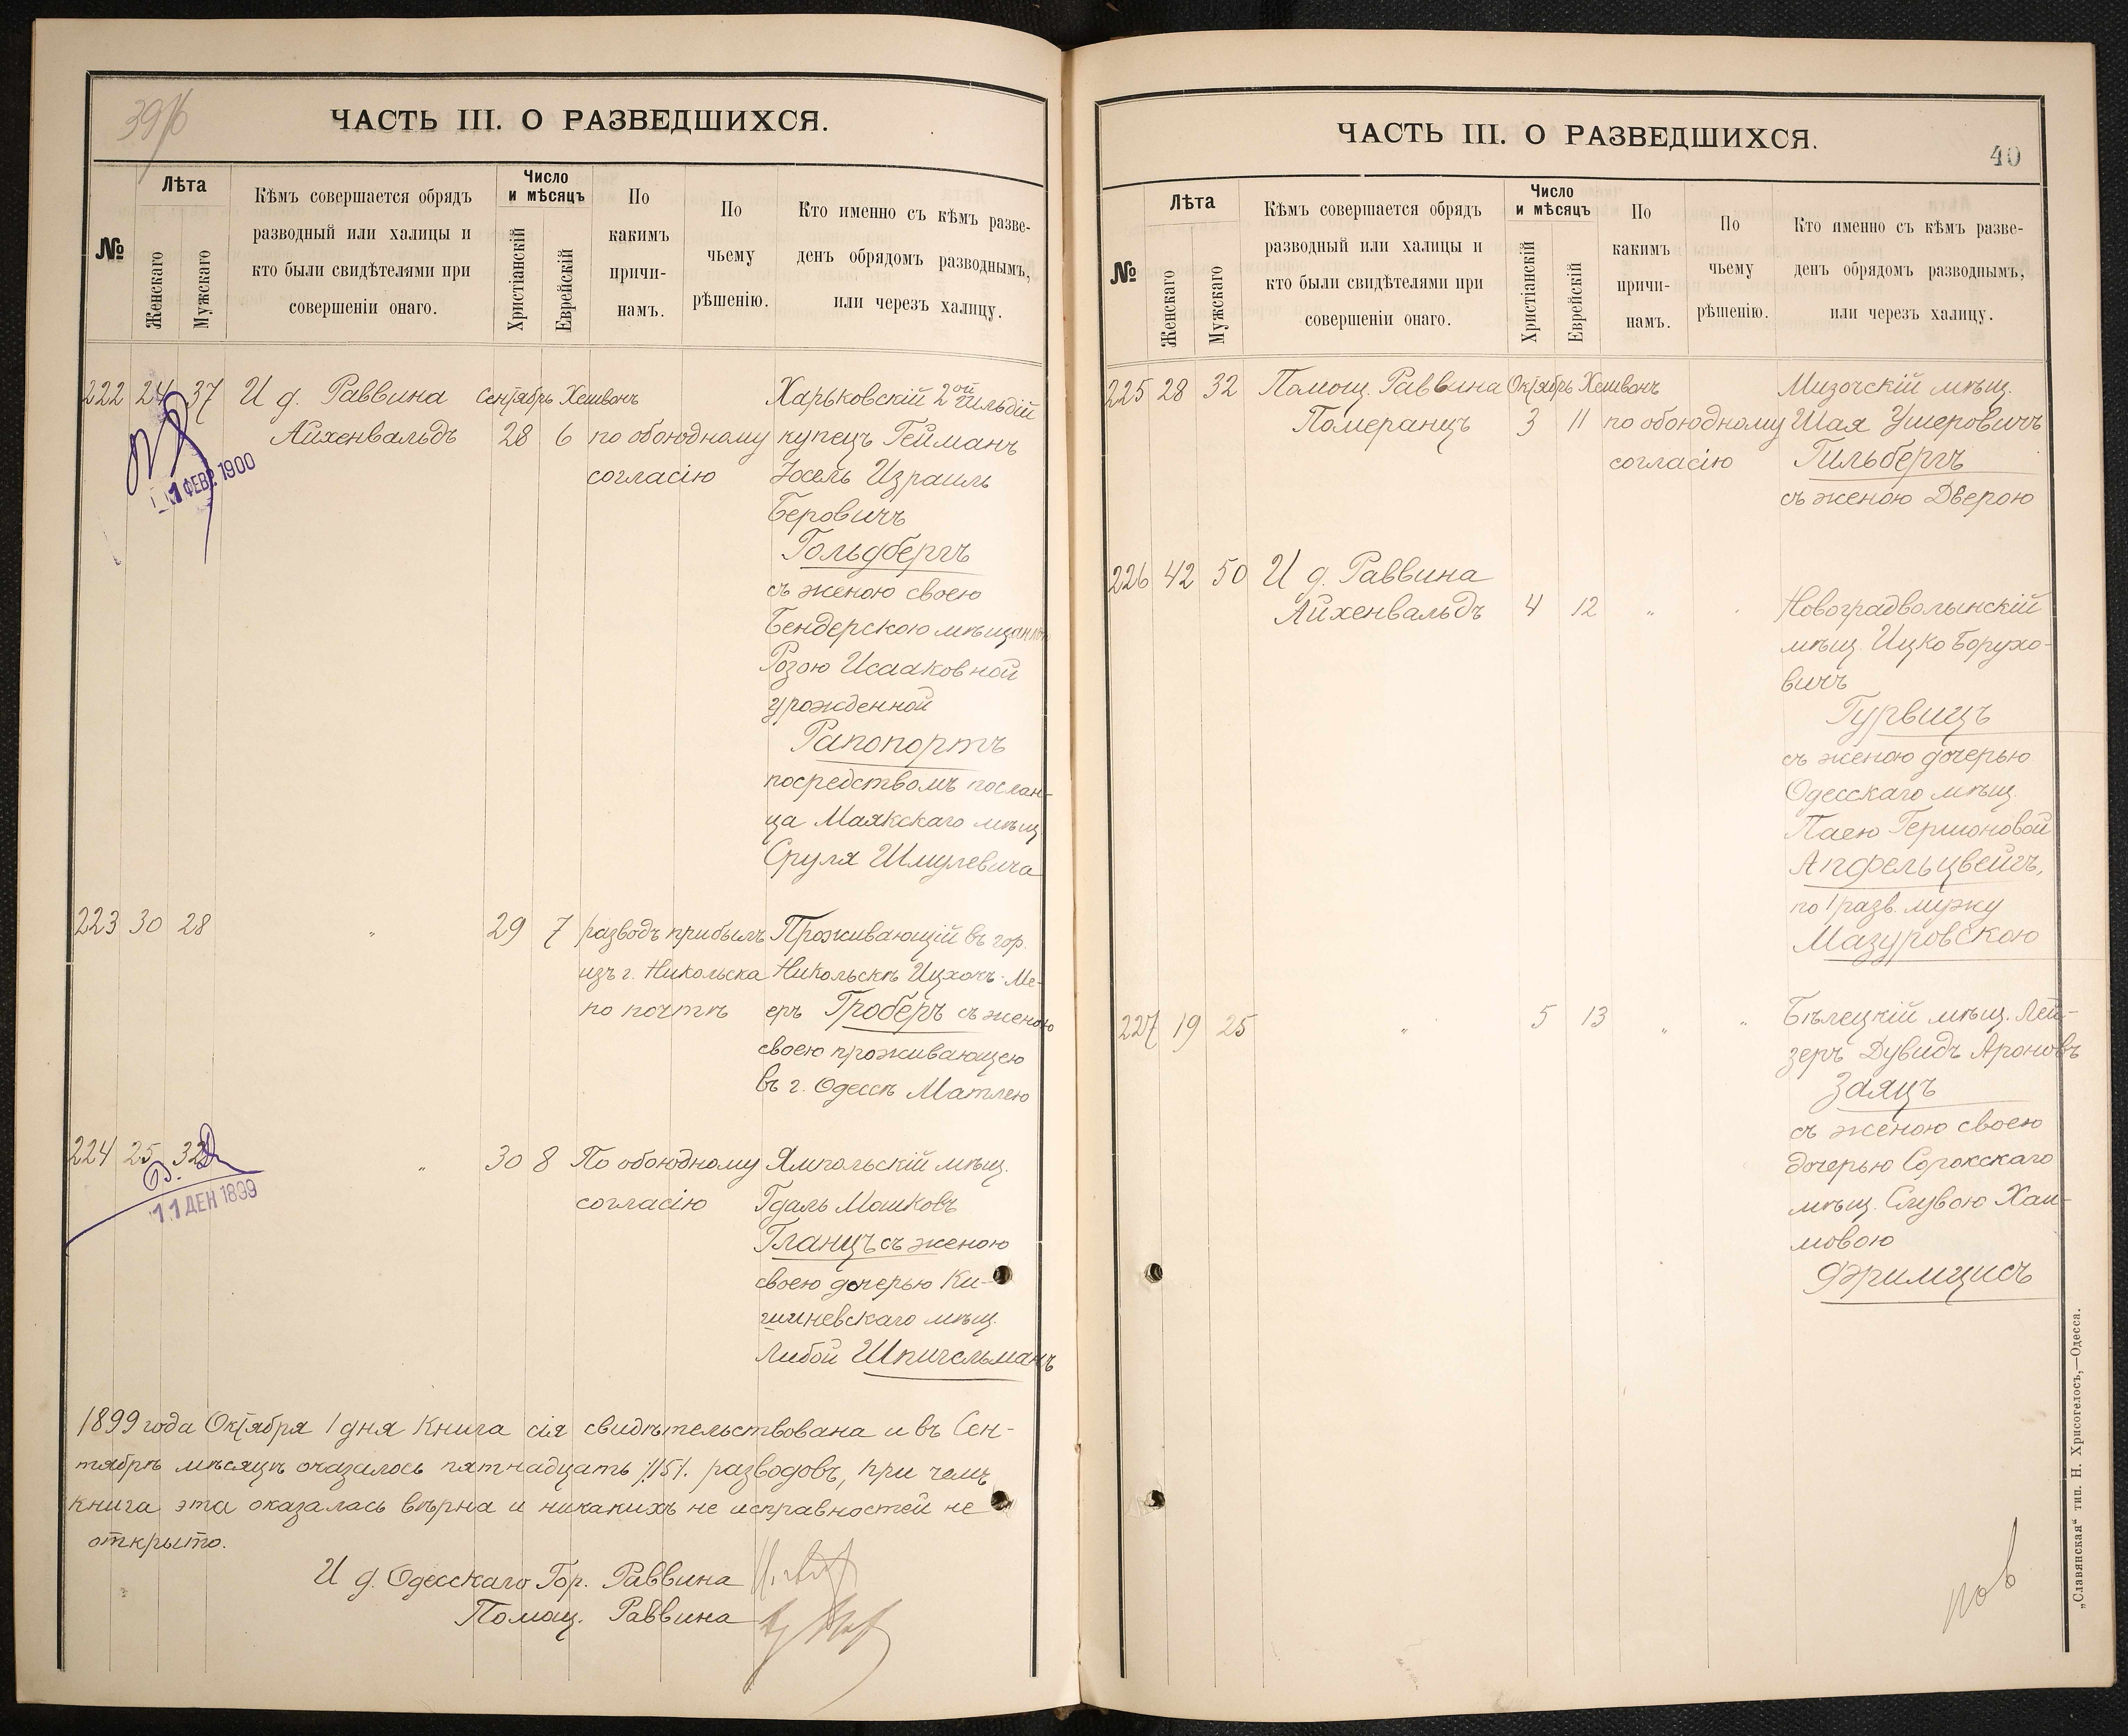 39
ЧАСТЬ III. О РАЗВЕДШИХСЯ.
№
Лѣта
Женскаго
Мужскаго
Кѣмъ совершается обрядъ
разводный или халицы и
кто были свидѣтелями при
совершеніи онаго.
Число
и мѣсяцъ
Христіанскій
Еврейскій
По
какимъ
причи-
намъ.
По
чьему
рѣшенію.
Кто именно съ кѣмъ разве-
денъ обрядомъ разводнымъ,
или черезъ халицу.
222 24 37 И д. Раввина Сентябрь Хешвонъ Харьковскій 2ой гильдіи
Айхенвальдъ 28 6 по обоюдному купецъ Гейманъ
согласію Іосель Израиль
Беровичъ
Гольдбергъ
съ женою своею
Бендерскою мѣщанкою
Розою Исааковной
урожденной
Рапопортъ
посредствомъ послан-
ца Маякскаго мѣщ.
Сруля Шмулевича
ФЕВР. 1900
223 30 28 " 29 7 разводъ прибылъ Проживающій въ гор.
изъ г. Никольска Никольскѣ Ицхокъ-Ме-
по почтѣ еръ Гроберъ съ женою
своею проживающею
въ г. Одессѣ Матлею
224 25 32 " 30 8 По обоюдному Ямпольскій мѣщ.
согласію Гдаль Мошковъ
Гланцъ съ женою
своею дочерью Ки-
шиневскаго мѣщ.
Либой Шпигельманъ
11 ДЕК 1899
1899 года Октября 1 дня Книга сія свидѣтельствована и въ Сен-
тябрѣ мѣсяцѣ оказалось пятнадцать /15/. разводовъ, при чемъ
книга эта оказалась вѣрна и никакихъ не исправностей не
открыто.
И д. Одесскаго Гор. Раввина
Помощ. Раввина
ЧАСТЬ III. О РАЗВЕДШИХСЯ.
40
№
Лѣта
Женскаго
Мужскаго
Кѣмъ совершается обрядъ
разводный или халицы и
кто были свидѣтелями при
совершеніи онаго.
Число
и мѣсяцъ
Христіанскій
Еврейскій
По
какимъ
причи-
намъ.
По
чьему
рѣшенію.
Кто именно съ кѣмъ разве-
денъ обрядомъ разводнымъ,
или черезъ халицу.
225 28 32 Помощ. Раввина Октябрь Хешвонъ Мизочскій мѣщ.
Померанцъ 3 11 по обоюдному Шая Ушеровичъ
согласію Гильбергъ
съ женою Дверою
226 42 50 И д. Раввина
Айхенвальдъ 4 12 " " Новоградволынскій
мѣщ. Ицко Борухо-
вичъ
Гурвицъ
съ женою дочерью
Одесскаго мѣщ.
Паею Гершоновой
Апфельцвейгъ,
по 1 разв. мужу
Мазуровскою
227 19 25 " 5 13 " " Бѣлецкій мѣщ. Лей-
зеръ Дувидъ Ароновъ
Заяцъ
съ женою своею
дочерью Сорокскаго
мѣщ. Слувою Хаи-
мовою
Фримцисъ
ров
„Славянская“ тип. Н. Хрисогелосъ,—Одесса.